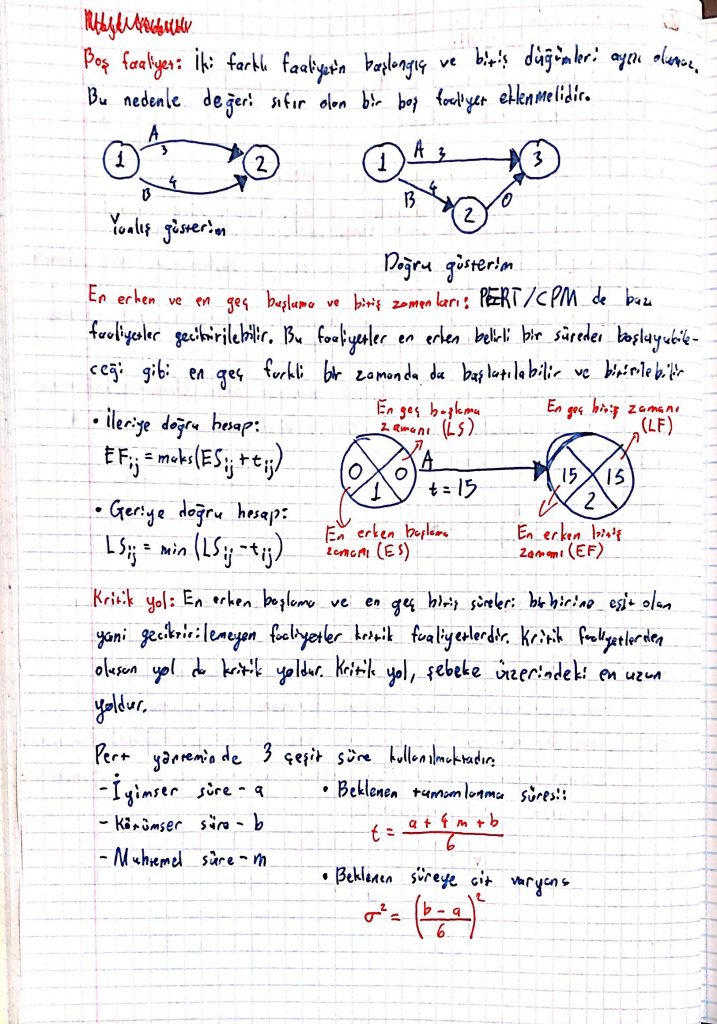 Boş faaliyet: İki farklı faaliyetin başlangıç ve bitiş düğümleri aynı olamaz.
Bu nedenle değeri sıfır olan bir boş faaliyet eklenmelidir.
1 A 3 B 4 2
1 A 3 B 4 2 0 3
Yanlış gösterim
Doğru gösterim
En erken ve en geç başlama ve bitiş zamanları: PERT/CPM de bazı
faaliyetler geciktirilebilir. Bu faaliyetler en erken belirli bir sürede başlayabile-
ceği gibi en geç farklı bir zamanda da başlatılabilir ve bitirilebilir
• İleriye doğru hesap:
EFij = maks(ESij + tij)
• Geriye doğru hesap:
LSij = min (LSij - tij)
En geç başlama
zamanı (LS)
En geç bitiş zamanı
(LF)
0 0 1
A
t = 15
15 15 2
En erken başlama
zamanı (ES)
En erken bitiş
zamanı (EF)
Kritik yol: En erken başlama ve en geç bitiş süreleri birbirine eşit olan
yani geciktirilemeyen faaliyetler kritik faaliyetlerdir. Kritik faaliyetlerden
oluşan yol da kritik yoldur. Kritik yol, şebeke üzerindeki en uzun
yoldur.
Pert yönteminde 3 çeşit süre kullanılmaktadır:
- İyimser süre - a
- Kötümser süre - b
- Muhtemel süre - m
• Beklenen tamamlanma süresi:
t = (a + 4m + b) / 6
• Beklenen süreye ait varyans
σ² = ((b - a) / 6)²